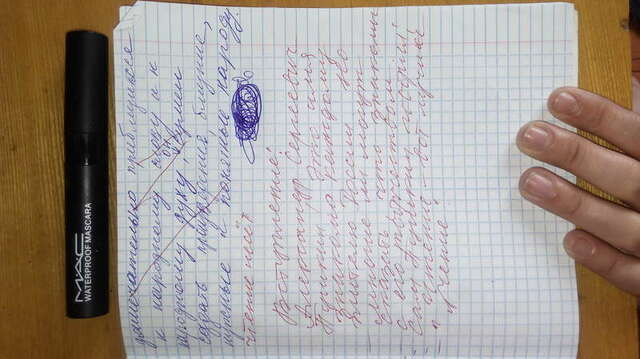 MAC
WATERPROOF MASCARA
замечательно приблизился
к народному слову и к
народному духу, он умел
создать произведения близкие,
нужные и понятные народу.
чтение несёт
Вступление:
Александр Сергеевич
Пушкин, это имя
знакомо каждому
жителю России. Но
многие ли могут
сказать, что знакомы
с его творчеством
Сам Пушкин говорил:
" Чтение – вот лучшее
учение".